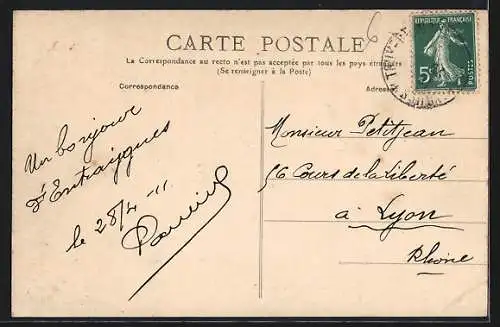 6
CARTE POSTALE
La Correspondance au recto n'est pas acceptée par tous les pays étrangers
(Se renseigner à la Poste)
Correspondance
Adresse
REPUBLIQUE FRANÇAISE
5c
POSTES
Un bonjour
d'Entraigues
le 28/4 - 11
Monsieur Petitjean
56 Cours de la Liberté
à Lyon
Rhône